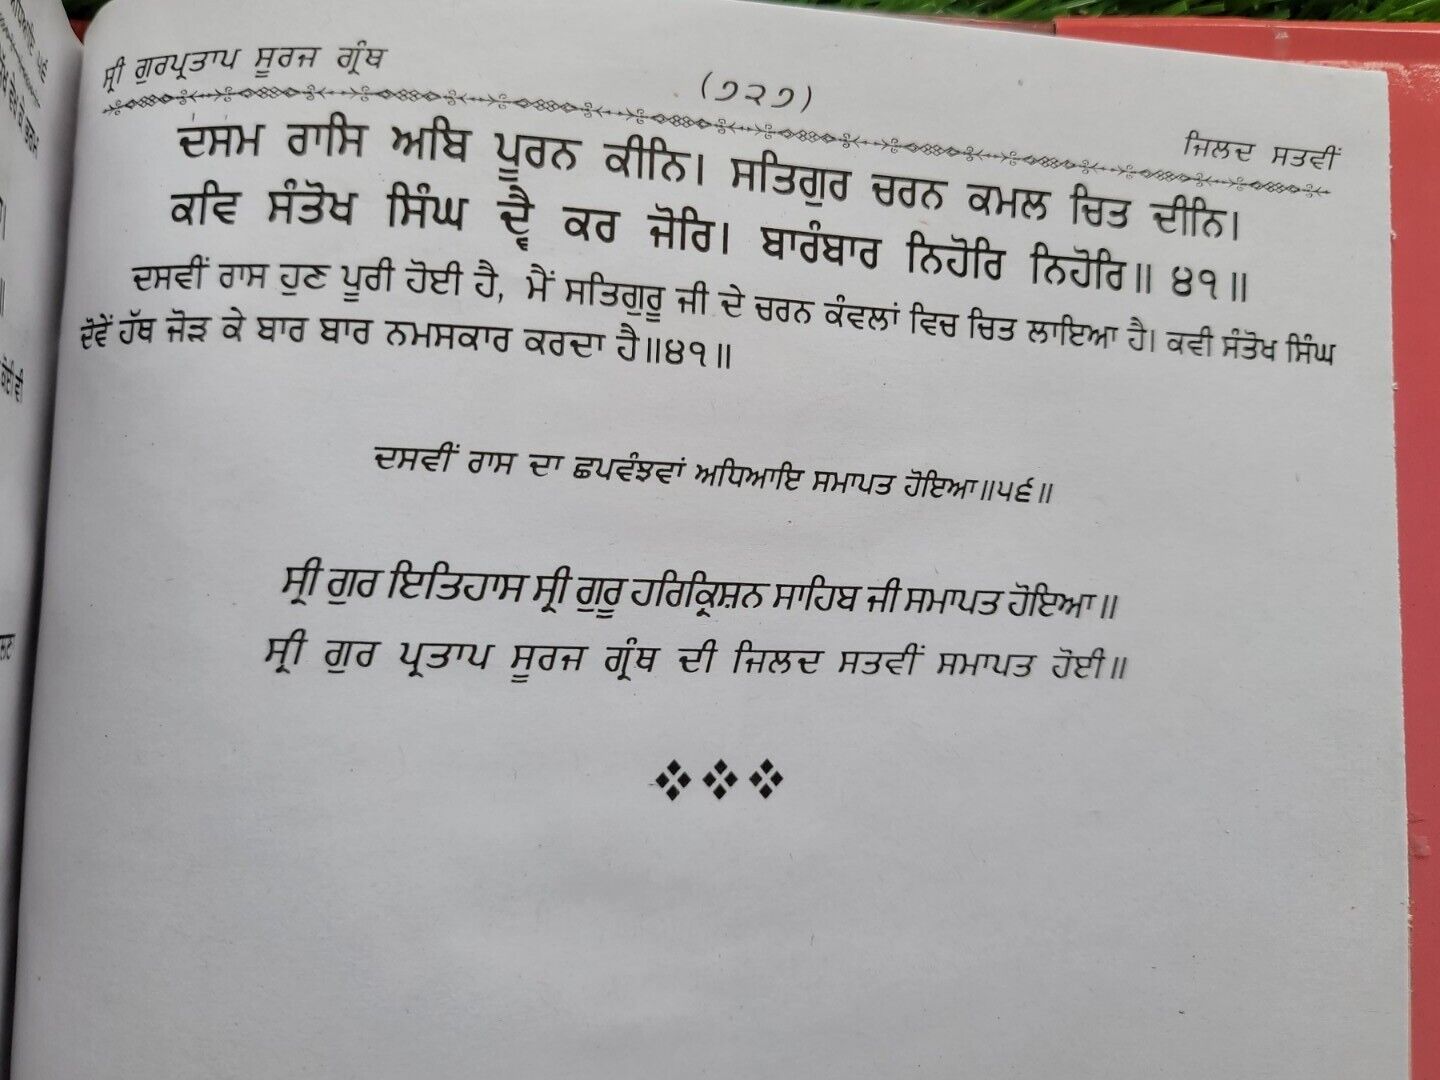 ਸ੍ਰੀ ਗੁਰਪ੍ਰਤਾਪ ਸੂਰਜ ਗ੍ਰੰਥ
(੭੨੭)
ਜਿਲਦ ਸਤਵੀਂ
ਦਸਮ ਰਾਸਿ ਅਬਿ ਪੂਰਨ ਕੀਨਿ। ਸਤਿਗੁਰ ਚਰਨ ਕਮਲ ਚਿਤ ਦੀਨਿ।
ਕਵਿ ਸੰਤੋਖ ਸਿੰਘ ਦ੍ਵੈ ਕਰ ਜੋਰਿ। ਬਾਰੰਬਾਰ ਨਿਹੋਰਿ ਨਿਹੋਰਿ॥ ੪੧॥
ਦਸਵੀਂ ਰਾਸ ਹੁਣ ਪੂਰੀ ਹੋਈ ਹੈ, ਮੈਂ ਸਤਿਗੁਰੂ ਜੀ ਦੇ ਚਰਨ ਕੰਵਲਾਂ ਵਿਚ ਚਿਤ ਲਾਇਆ ਹੈ। ਕਵੀ ਸੰਤੋਖ ਸਿੰਘ
ਦੋਵੇਂ ਹੱਥ ਜੋੜ ਕੇ ਬਾਰ ਬਾਰ ਨਮਸਕਾਰ ਕਰਦਾ ਹੈ॥੪੧॥
ਦਸਵੀਂ ਰਾਸ ਦਾ ਛਪਵੰਝਵਾਂ ਅਧਿਆਇ ਸਮਾਪਤ ਹੋਇਆ॥੫੬॥
ਸ੍ਰੀ ਗੁਰ ਇਤਿਹਾਸ ਸ੍ਰੀ ਗੁਰੂ ਹਰਿਕ੍ਰਿਸ਼ਨ ਸਾਹਿਬ ਜੀ ਸਮਾਪਤ ਹੋਇਆ॥
ਸ੍ਰੀ ਗੁਰ ਪ੍ਰਤਾਪ ਸੂਰਜ ਗ੍ਰੰਥ ਦੀ ਜਿਲਦ ਸਤਵੀਂ ਸਮਾਪਤ ਹੋਈ॥